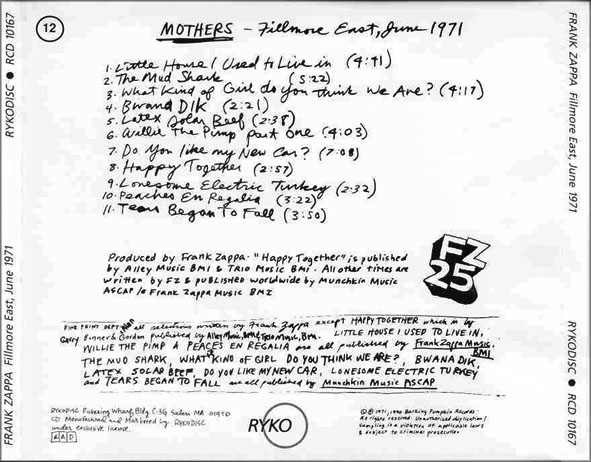 12
MOTHERS - Fillmore East, June 1971
1. Little House I Used to Live in (4:41)
2. The Mud Shark (5:22)
3. What Kind of Girl do you think We Are? (4:17)
4. Bwana Dik (2:21)
5. Latex Solar Beef (2:38)
6. Willie The Pimp part One (4:03)
7. Do You like my New Car? (7:08)
8. Happy Together (2:57)
9. Lonesome Electric Turkey (2:32)
10. Peaches En Regalia (3:22)
11. Tears Began To Fall (3:50)
Produced by Frank Zappa - "Happy Together" is published
by Alley Music BMI & Trio Music BMI. All other tunes are
written by FZ & published worldwide by Munchkin Music
ASCAP / Frank Zappa Music BMI
FZ
25
FINE PRINT DEPT: all selections written by Frank Zappa except HAPPY TOGETHER which is by
Garry Bonner & Gordon published by Alley Music, BMI, & Trio Music, BMI. LITTLE HOUSE I USED TO LIVE IN,
WILLIE THE PIMP & PEACES EN REGALIA are all published by Frank Zappa Music
BMI
THE MUD SHARK, WHAT KIND OF GIRL DO YOU THINK WE ARE?, BWANA DIK
LATEX SOLAR BEEF, DO YOU LIKE MY NEW CAR, LONESOME ELECTRIC TURKEY
and TEARS BEGAN TO FALL are all published by Munchkin Music ASCAP
RYKODISC Pickering Wharf, Bldg C-3G Salem MA 01970
CD Manufactured and Marketed by RYKODISC
under exclusive license.
AAD
RYKO
©℗ 1971, 1990 Barking Pumpkin Records.
Unauthorized duplication/
sampling is a violation of applicable laws
& subject to criminal prosecution
FRANK ZAPPA Fillmore East, June 1971
RYKODISC ● RCD 10167
FRANK ZAPPA Fillmore East, June 1971
RYKODISC ● RCD 10167